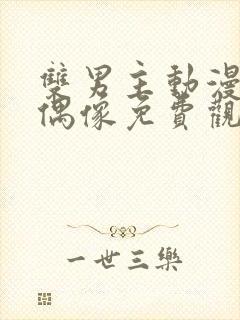 雙男主動漫
偶像免費觀
一世三樂